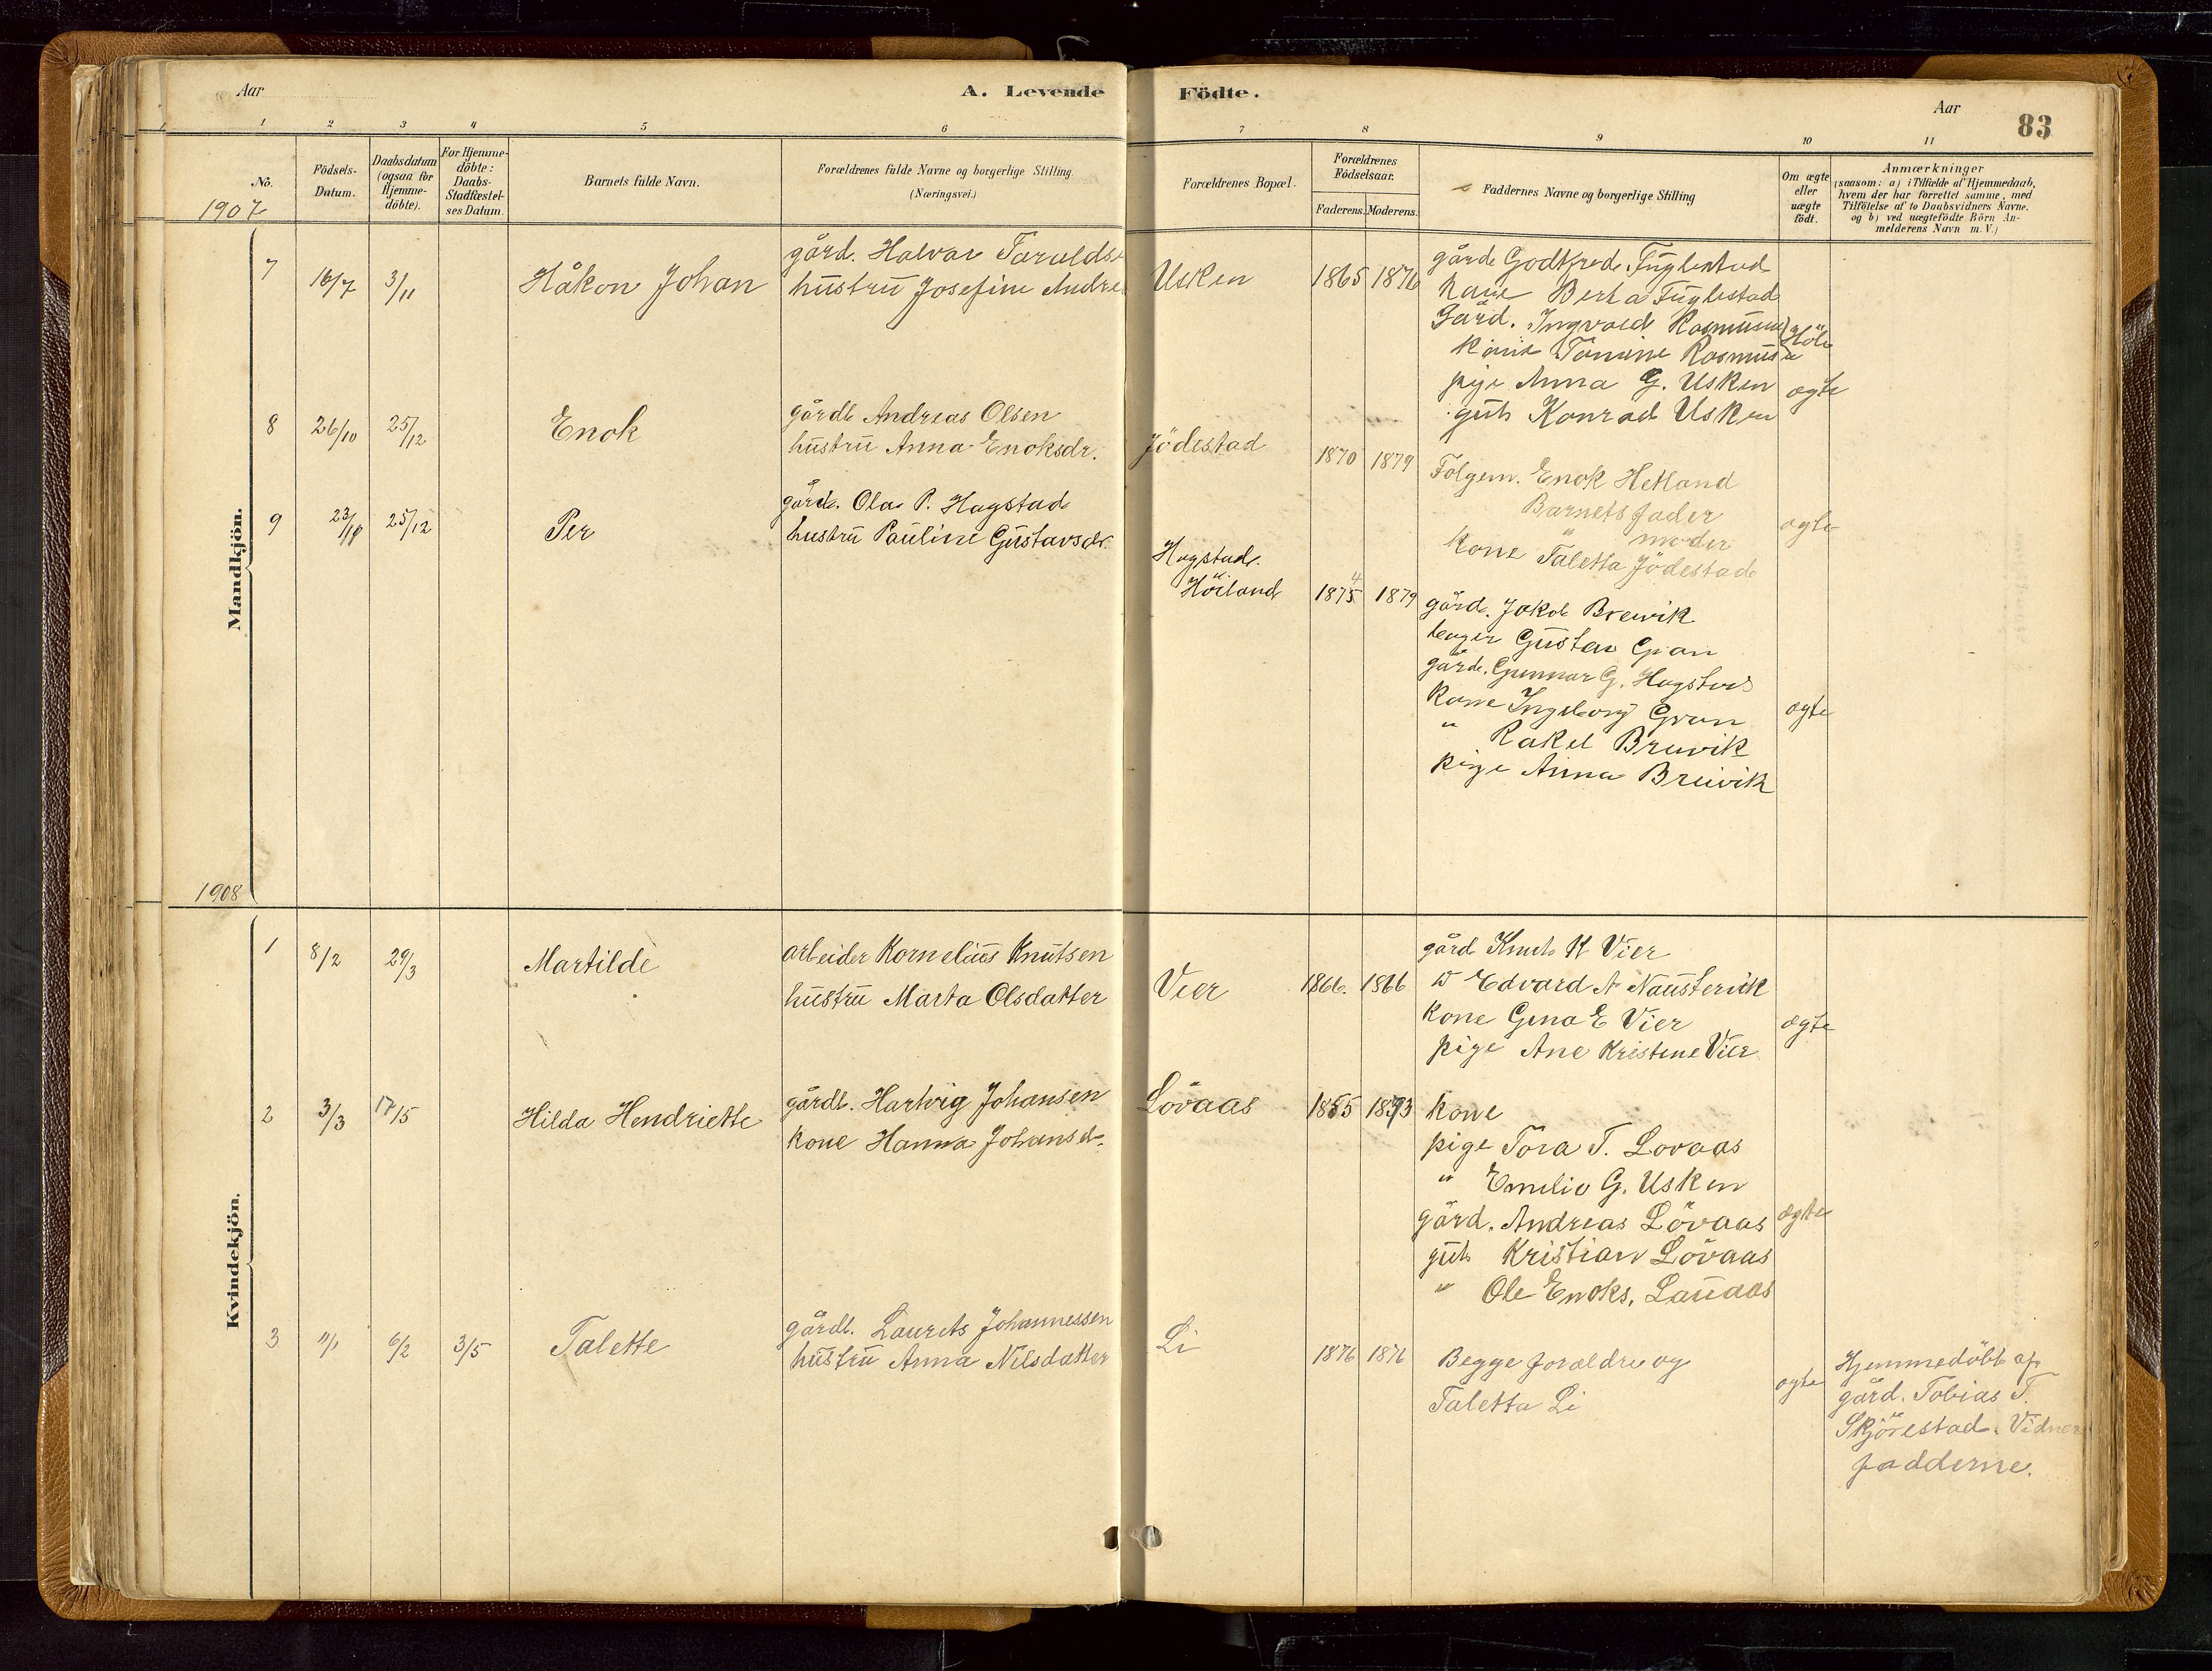 Aar
A. Levende Födte.
Aar
83
1 2 3 4 5 6 7 8 9 10 11
No.
Födsels-Datum.
Daabsdatum (ogsaa for Hjemme-döbte).
For Hjemme-döbte: Daabs-Stadfæstel-ses Datum.
Barnets fulde Navn.
Forældrenes fulde Navne og borgerlige Stilling. (Næringsvei.)
Forældrenes Bopæl.
Forældrenes Födselsaar.
Faderens. Moderens.
Faddernes Navne og borgerlige Stilling
Om ægte eller uægte födt.
Anmærkninger
(saasom: a) i Tilfælde af Hjemmedaab,
hvem der har forrettet samme, med
Tilföielse af to Daabsvidners Navne.
og b) ved uægtefödte Börn An-
melderens Navn m. V.)
1907
Mandkjön.
7 16/7 3/11 Håkon Johan
gård. Halvar Taralds
hustru Josefine Andre
Usken 1865 1876
gård. Godtfred Fuglestad
kone Berta Fuglestad
Gård. Ingvald Rasmusen
kone Tomine Rasmusen
Höle
pige Anna G. Usken
gut Konrad Usken
ægte
8 26/10 25/12 Enok
gårdb Andreas Olsen
hustru Anna Enoksdr.
Jödestad 1870 1879
Folgem. Enok Hetland
Barnets fader
" moder
kone Taletta Jödestad
ægte
9 25/12 Per
gård. Ola P. Hogstad
hustru Pauline Gustavsdr.
Hogstad.
Höiland 1875 4 1879
gård. Jakob Brewik
Gustav Gran
gård. Gunnar G. Hogstad
Kone Ingeborg Gran
" Rakel Breivik
pige Anna Breivik
ægte
1908
Kvindekjön.
1 8/2 29/3 Martilde
arbeider Kornelius Knutsen
hustru Marta Olsdatter
Vier 1866. 1866
gård Knut K Vier
D Edvard A Naustervik
kone Gina E Vier
pige Ane Kristine Vier
ægte
2 3/3 17/5 Hilda Hendriette
gårdb. Hartvig Johansen
kone Hanna Johansd.
Lövaas 1855 1873
kone
pige Tora T. Lovaas
" Emilie G. Usken
gård. Andreas Lövaas
gut Kristian Lövaas
" Ole Enoks. Lauaas
ægte
3 6/2 3/5 Talette
gårdb. Laurits Johannessen
hustru Anna Nilsdatter
Li 1876 1876
Begge forældre og
Taletta Li
ægte
Hjemmedöbt af
gård. Tobias T.
Skjörestad. Vidner
fadderne.